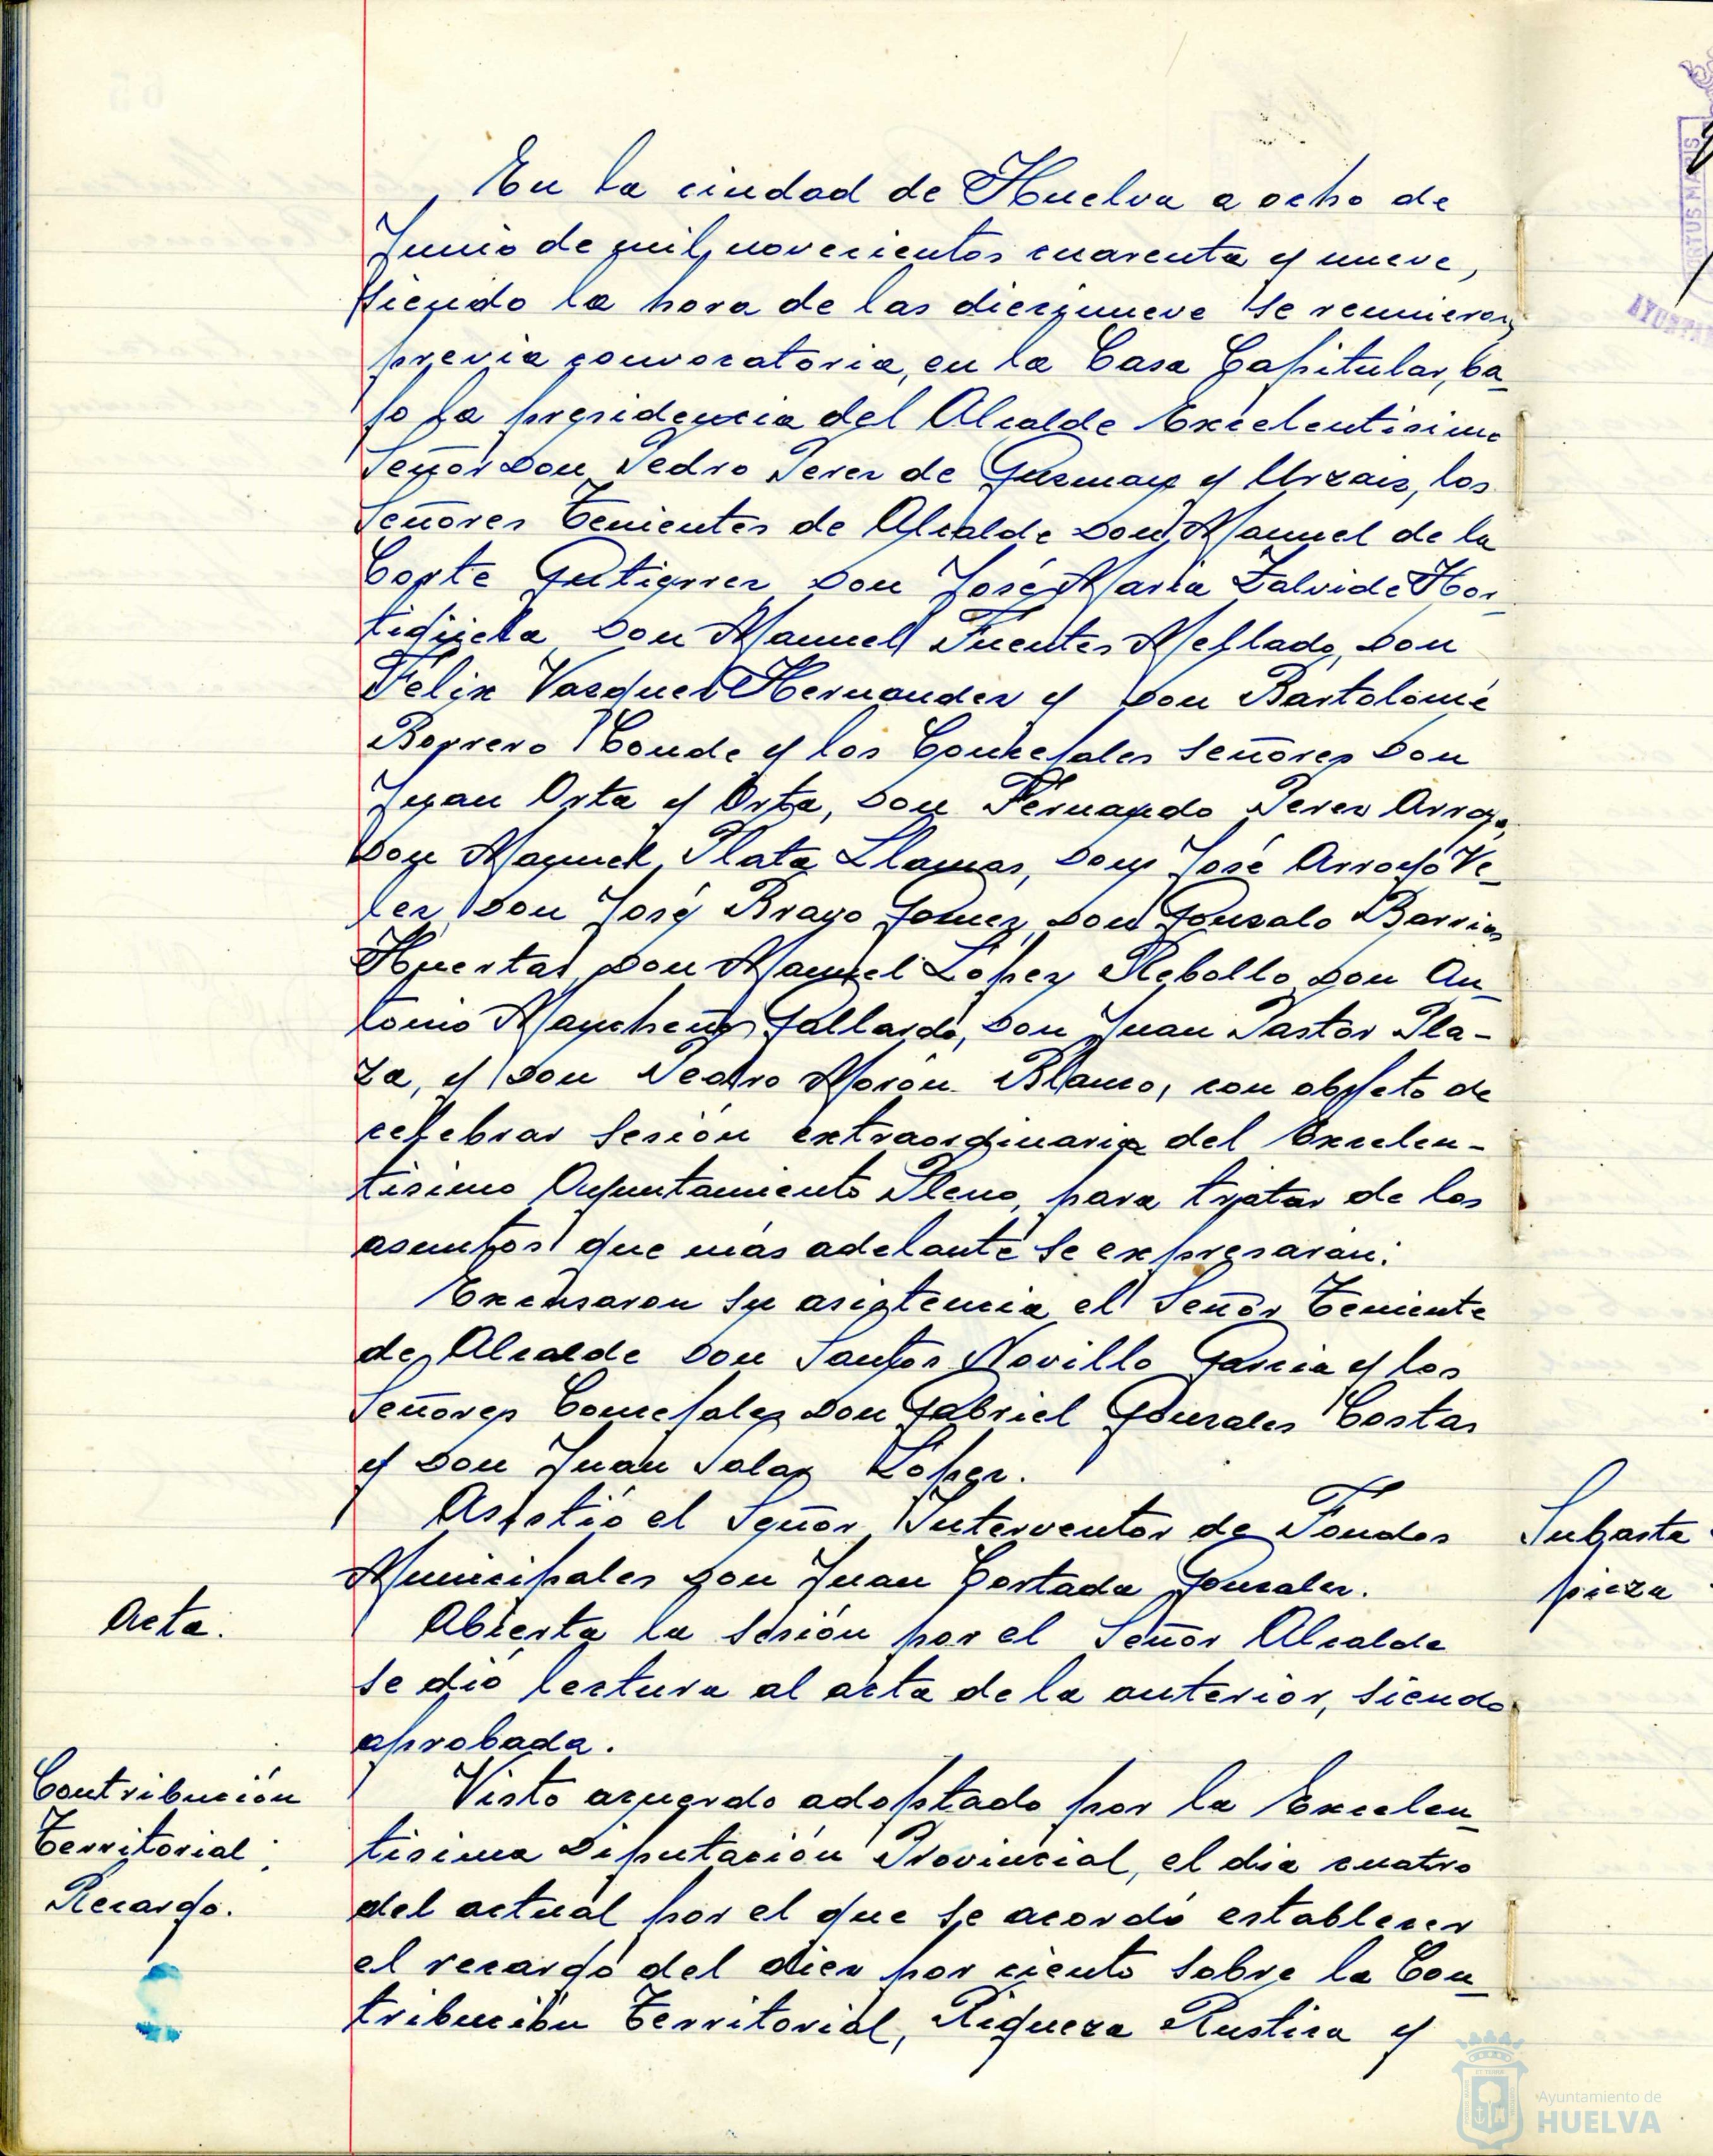 En la ciudad de Huelva a ocho de
Junio de mil novecientos cuarenta y nueve,
siendo la hora de las diecinueve se reunieron,
previa convocatoria, en la Casa Capitular, ba_
jo la presidencia del Alcalde Excelentisimo
Señor Don Pedro Perez de Guzman y Urzaiz, los
Señores Tenientes de Alcalde Don Manuel de la
Corte Gutierrez, Don José Maria Zalvide Hor_
tigüela, Don Manuel Fuentes Mellado, Don
Felix Vazquez Hernandez y Don Bartolomé
Borrero Conde y los Concejales Señores Don
Juan Orta y Orta, Don Fernando Perez Arroyo,
Don Manuel Plata Llamas, Don José Arroyo Ve_
lez, Don José Bravo Gomez, Don Gonzalo Barrios
Huertas, Don Manuel López Rebollo, Don An_
tonio Mancheño Gallardo, Don Juan Pastor Pla-
za, y Don Pedro Morón Blanco, con objeto de
celebrar sesión extraordinaria del Excelen-
tisimo Ayuntamiento Pleno, para tratar de los
asuntos que más adelante se expresarán:
Excusaron su asistencia el Señor Teniente
de Alcalde Don Santos Novillo Garcia y los
Señores Concejales Don Gabriel Gonzalez Costas
y Don Juan Salas López.
Asistió el Señor Interventor de Fondos
Municipales Don Juan Cortada Gonzalez.
Acta.
Abierta la sesión por el Señor Alcalde
se dió lectura al acta de la anterior, siendo
aprobada.
Contribución
Territorial:
Recargo.
Visto acuerdo adoptado por la Excelen_
tisima Diputación Provincial, el dia cuatro
del actual por el que se acordó establecer
el recargo del diez por ciento sobre la Con_
tribución Territorial, Riqueza Rustica y
Subasta
pieza
Ayuntamiento de
HUELVA